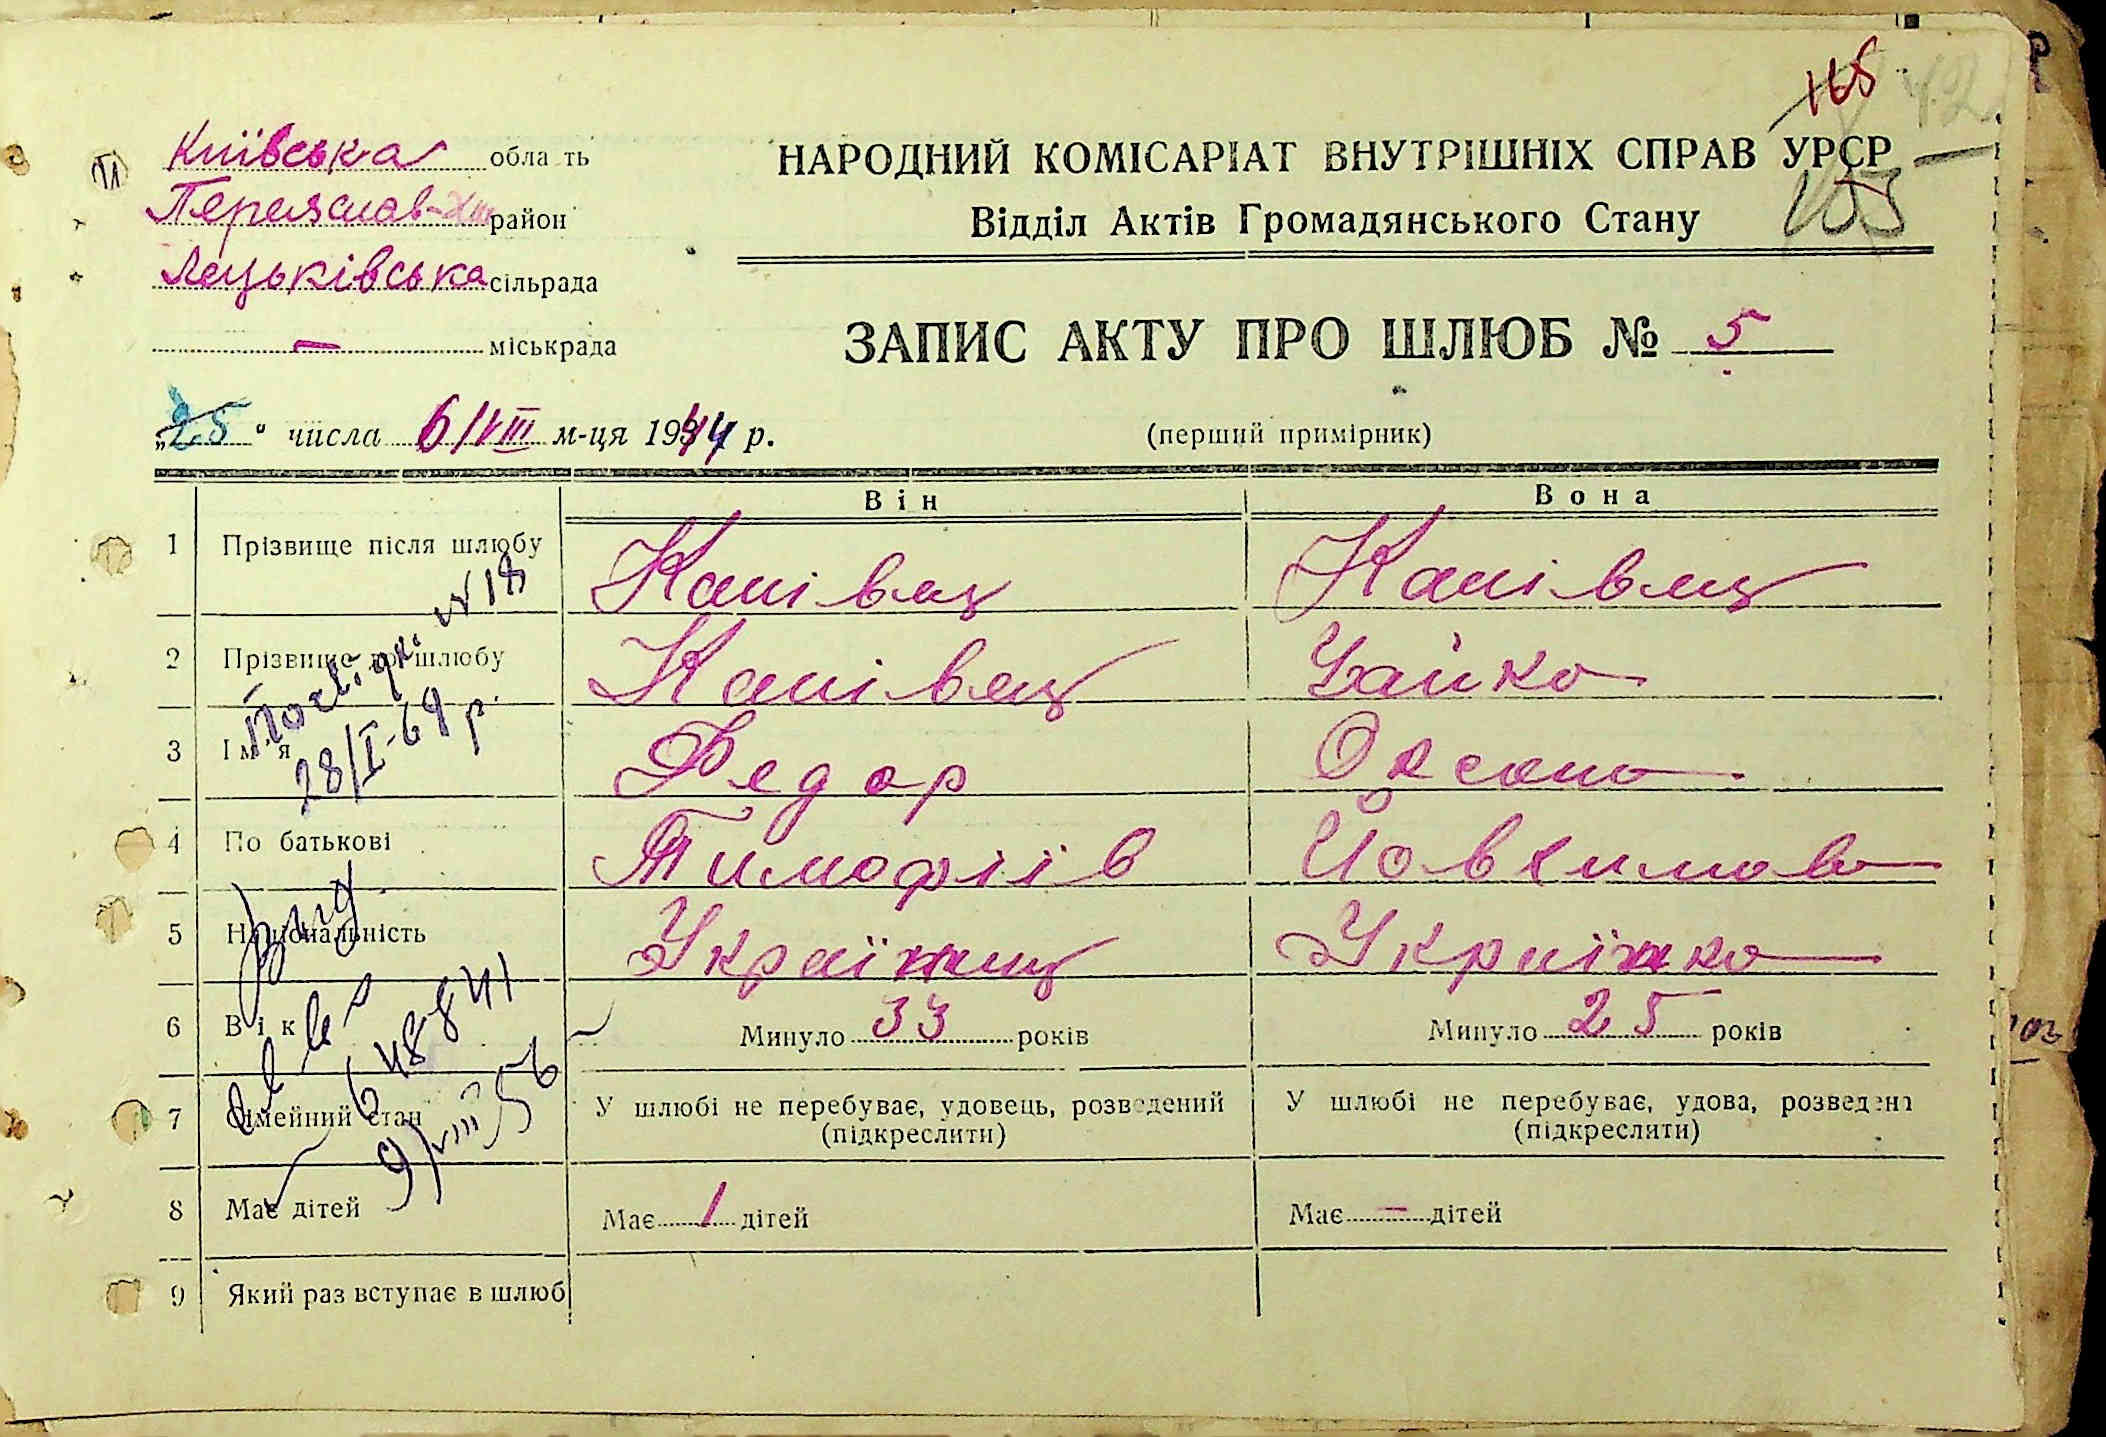 168 42
Київська область
Переяслав-Хм район
Лецьківська сільрада
— міськрада
НАРОДНИЙ КОМІСАРІАТ ВНУТРІШНІХ СПРАВ УРСР
Відділ Актів Громадянського Стану
103
ЗАПИС АКТУ ПРО ШЛЮБ № 5
„25" числа 6/VIII м-ця 1944 р.
(перший примірник)
Він Вона
1 Прізвище після шлюбу Канівец Канівец
№ 18
2 Прізвище до шлюбу Канівец Чайко
3 Ім'я Федор Оксана
28/I-69 р.
4 По батькові Тимофіїв Йовхимова
5 Національність Українец Українка
6 Вік Минуло 33 років Минуло 25 років
648841
7 Сімейний стан У шлюбі не перебуває, удовець, розведений У шлюбі не перебуває, удова, розведена
(підкреслити) (підкреслити)
9/VIII 56
8 Має дітей Має 1 дітей Має — дітей
9 Який раз вступає в шлюб